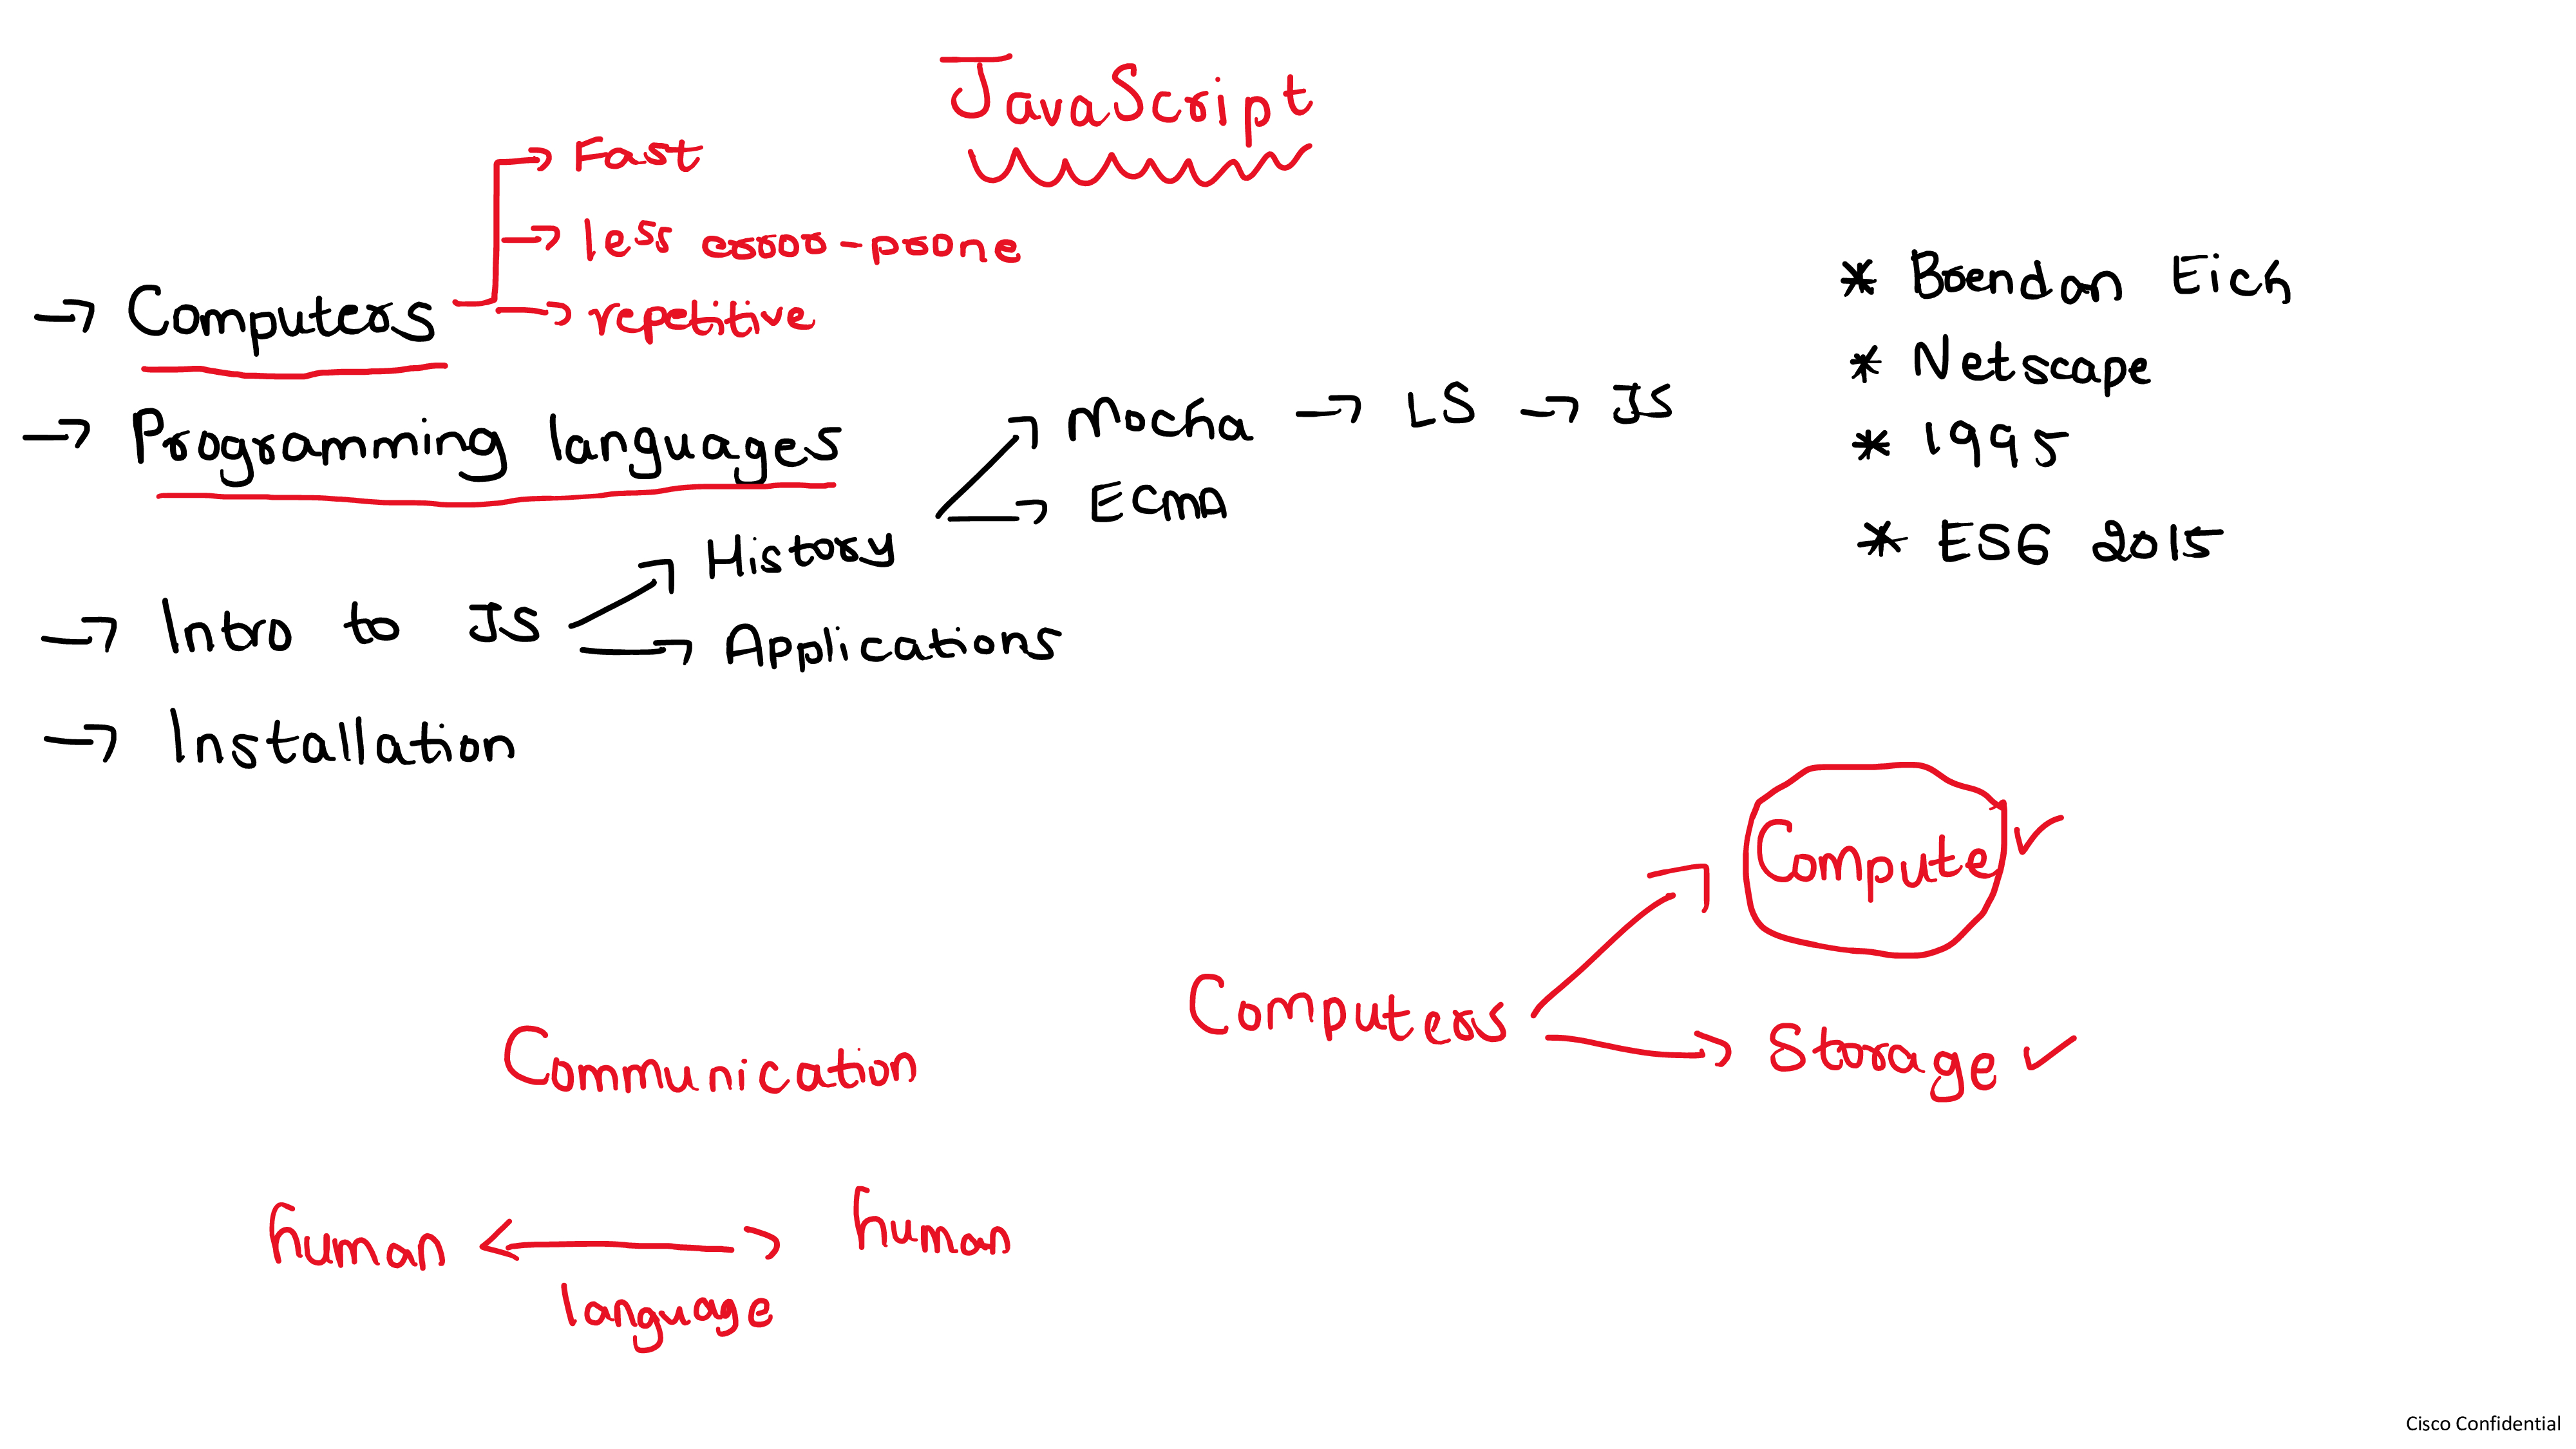 JavaScript
→ Computers
→ Fast
→ less error-prone
→ repetitive
→ Programming languages
→ Intro to JS
→ History
→ Mocha → LS → JS
→ ECMA
→ Applications
→ Installation
* Brendan Eich
* Netscape
* 1995
* ES6 2015
Computers
→ Compute ✓
→ Storage ✓
Communication
human ↔ human
language
Cisco Confidential